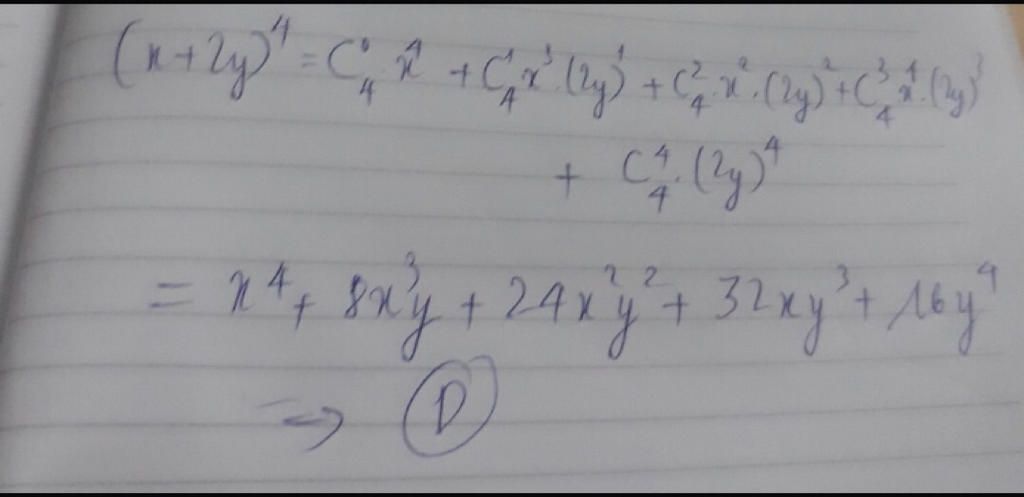 (x+2y)⁴ = C⁰₄ x⁴ + C¹₄ x³.(2y)¹ + C²₄.x².(2y)² + C³₄ x¹.(2y)³
+ C⁴₄.(2y)⁴
= x⁴ + 8x³y + 24x²y² + 32xy³ + 16y⁴
=> D